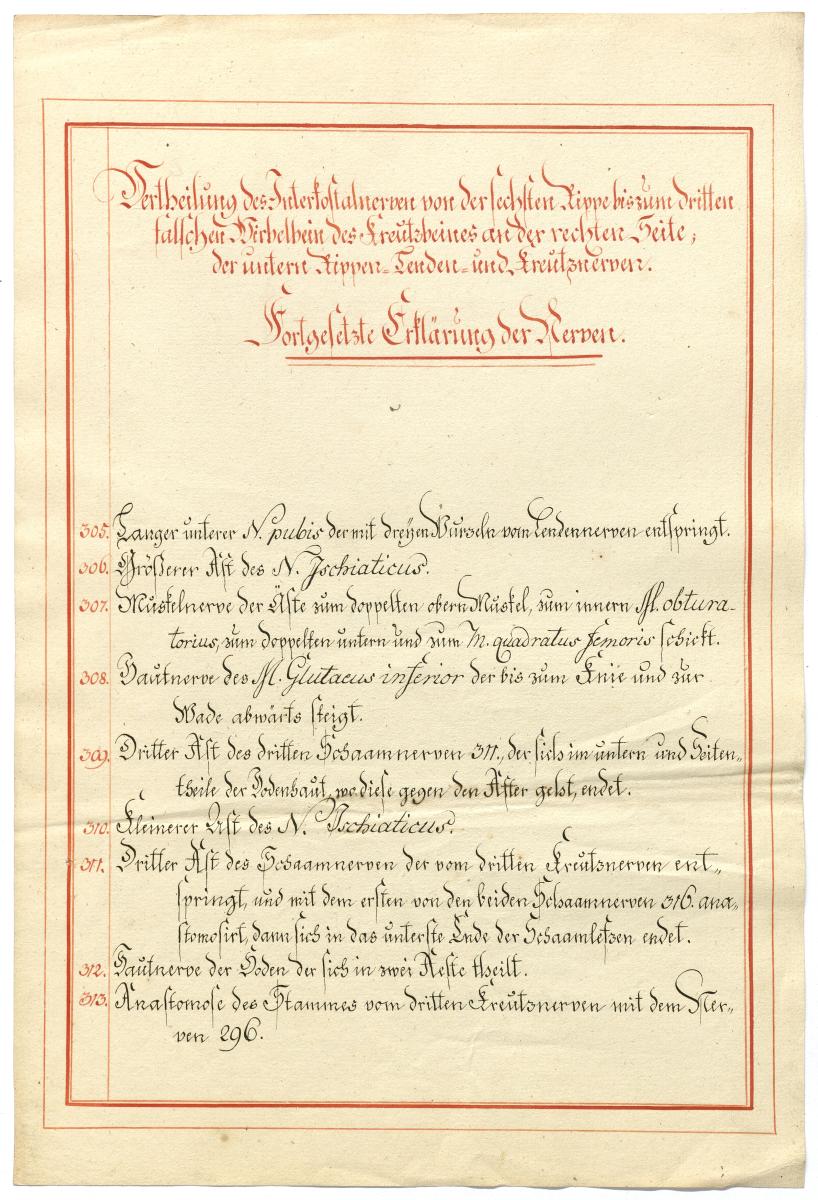 Vertheilung des Interkostalnerven von der sechsten Rippe bis zum dritten
falschen Wirbelbein des Kreutzbeines an der rechten Seite;
der untern Rippen- Lenden- und Kreutznerven.
Fortgesetzte Erklärung der Nerven.
305. Langer unterer N. pubis der mit dreyen Wurzeln vom Lendennerven entspringt.
306. Größerer Ast des N. Ischiaticus.
307. Muskelnerve der Äste zum doppelten obern Muskel, zum innern M. obtura-
torius, zum doppelten untern und zum M. quadratus femoris schickt.
308. Hautnerve des M. Glutaeus inferior der bis zum Knie und zur
Wade abwärts steigt.
309. Dritter Ast des dritten Schaamnerven 311., der sich im untern und Seiten-
theile der Hodenhaut, wo diese gegen den After geht, endet.
310. Kleinerer Ast des N. Ischiaticus.
311. Dritter Ast des Schaamnerven der vom dritten Kreutznerven ent-
springt, und mit dem ersten von den beiden Schaamnerven 316. ana-
stomosirt, dann sich in das unterste Ende der Schaamlefzen endet.
312. Hautnerve der Hoden der sich in zwei Aeste theilt.
313. Anastomose des Stammes vom dritten Kreutznerven mit dem Ner-
ven 296.